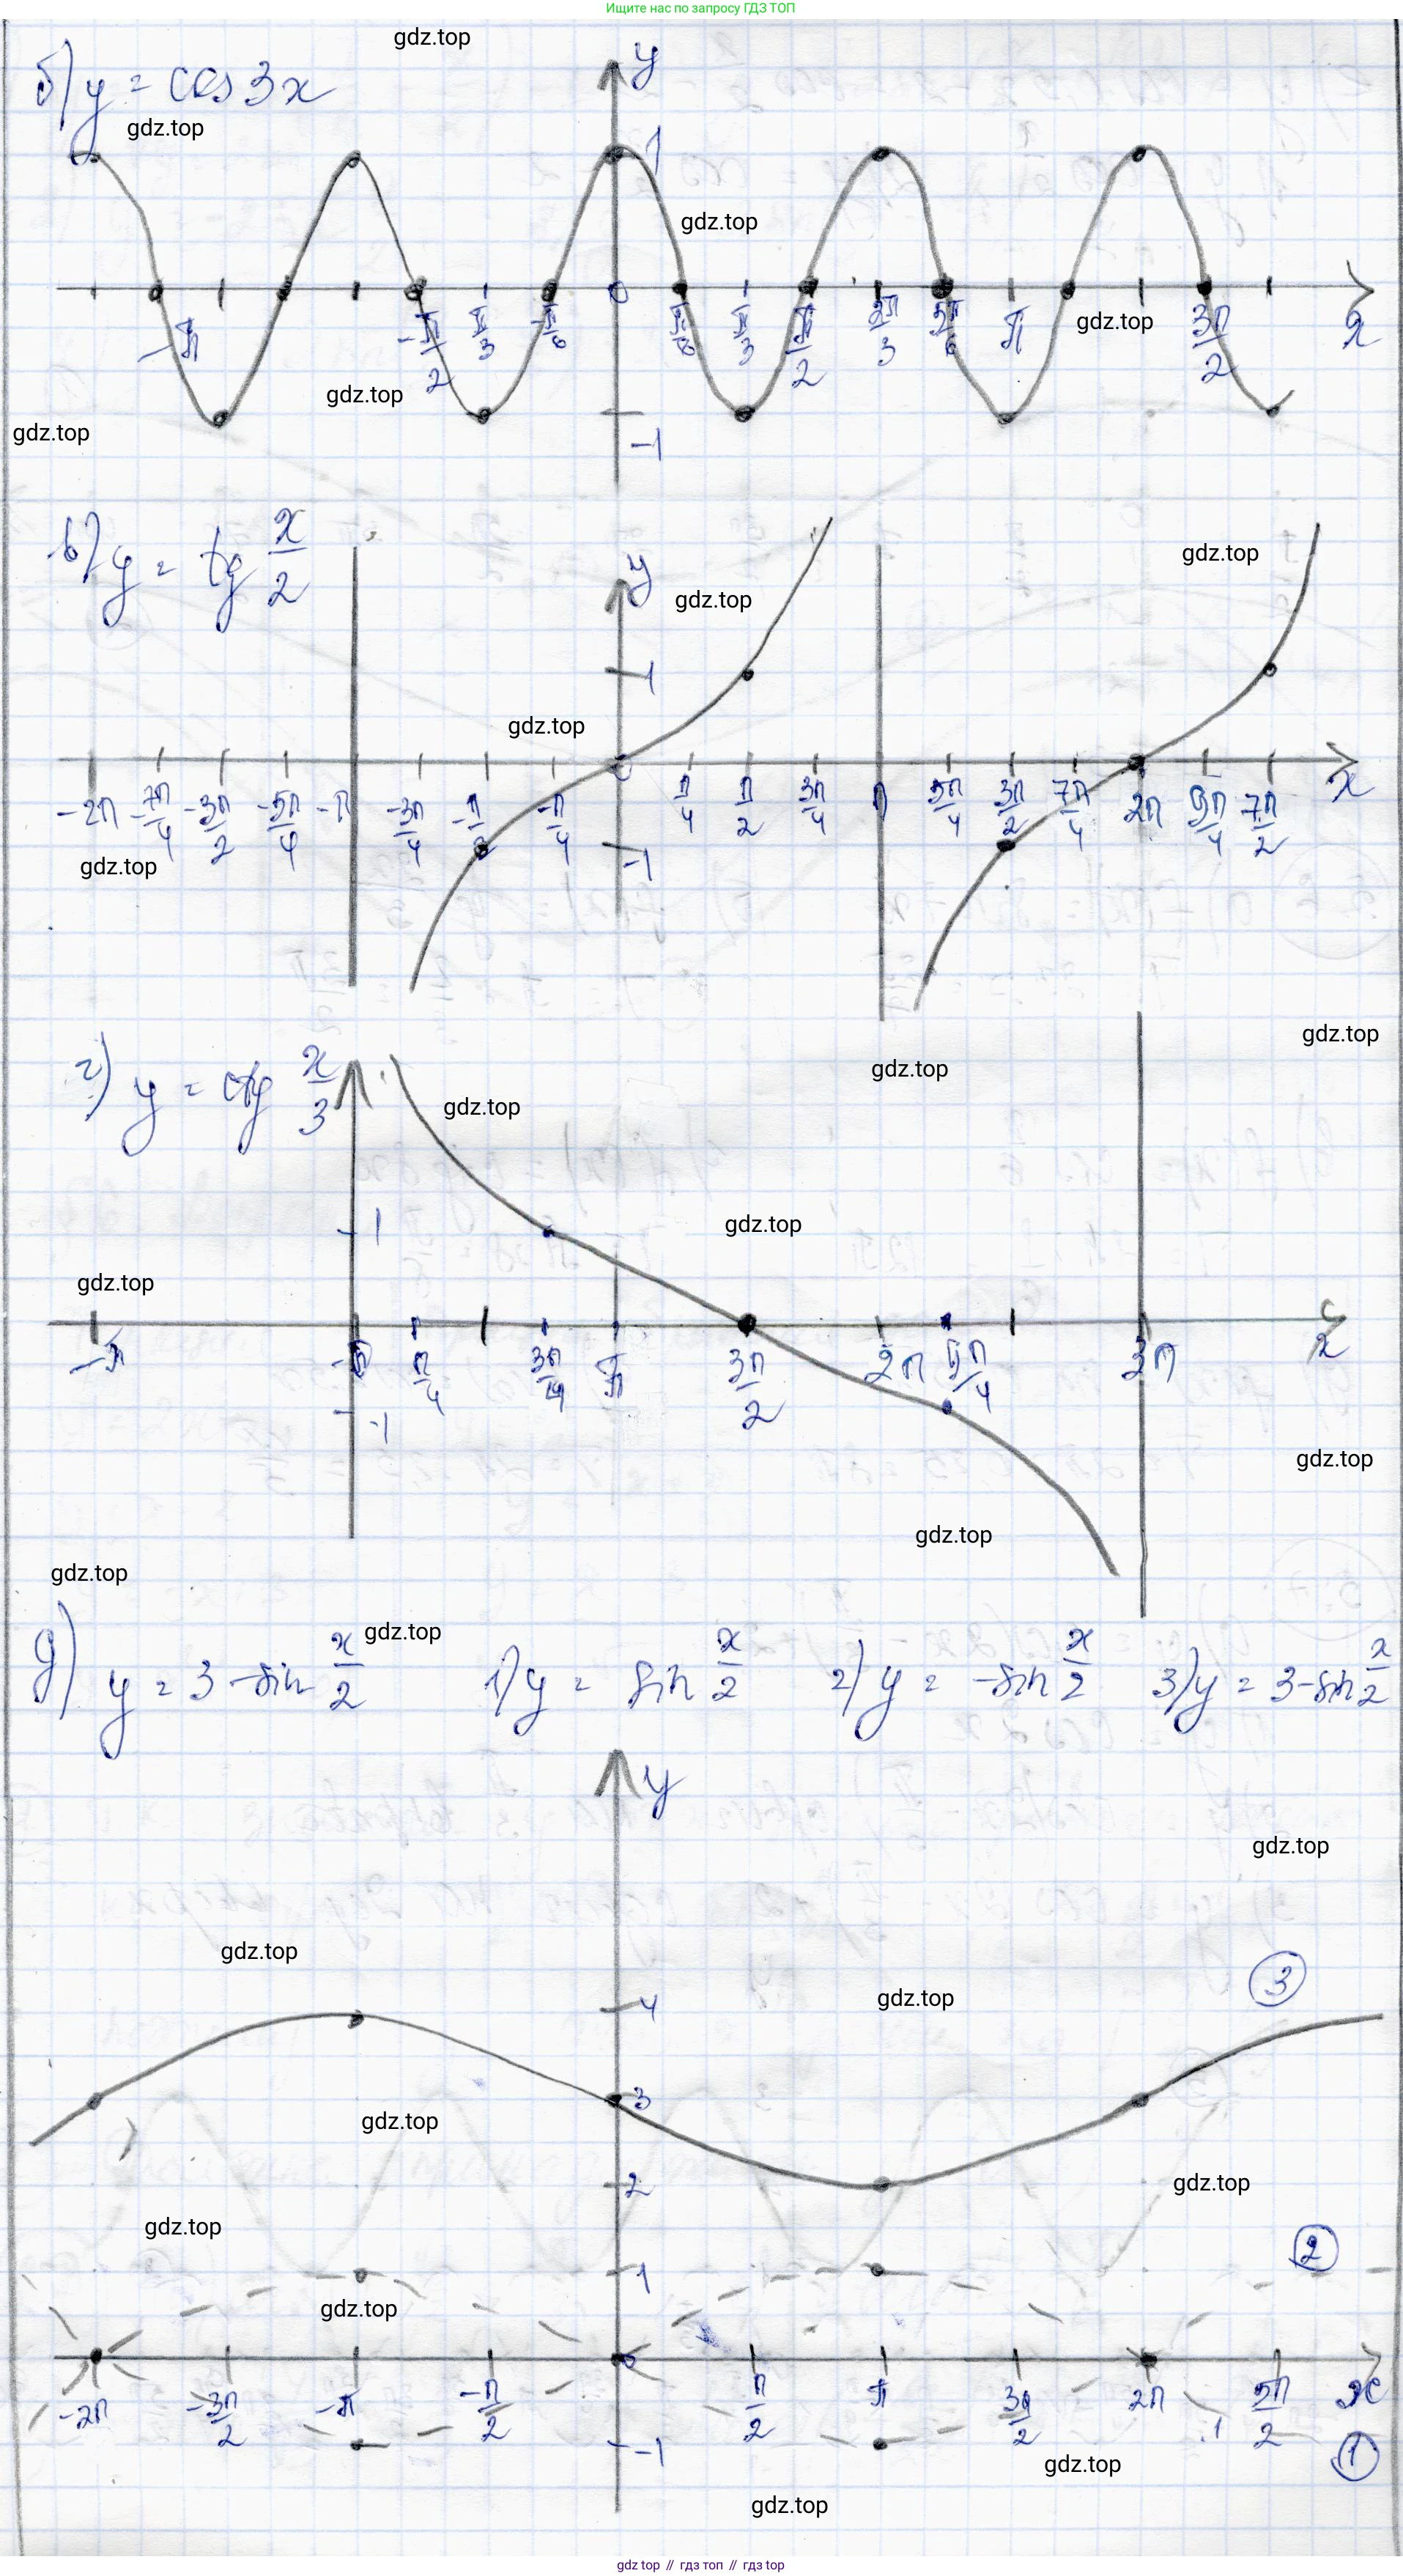 Ищите нас по запросу ГДЗ ТОП
gdz.top
б) y = cos 3x
gdz.top
y
1
gdz.top
-π -π/2 -π/3 -π/6 0 π/6 π/3 π/2 2π/3 5π/6 π 3π/2 x
gdz.top
gdz.top
gdz.top
-1
в) y = tg x/2
y
gdz.top
gdz.top
1
gdz.top
-2π -7π/4 -3π/2 -5π/4 -π -3π/4 -π/2 -π/4 0 π/4 π/2 3π/4 π 5π/4 3π/2 7π/4 2π 9π/4 7π/2 x
gdz.top
-1
gdz.top
г) y = ctg x/3
gdz.top
gdz.top
1
gdz.top
gdz.top
-π π/4 3π/4 π 3π/2 2π 9π/4 3π x
-1
gdz.top
gdz.top
gdz.top
д) y = 3 - sin x/2 1) y = sin x/2 2) y = -sin x/2 3) y = 3 - sin x/2
gdz.top
y
gdz.top
gdz.top
3
4
gdz.top
3
gdz.top
2
gdz.top
gdz.top
2
1
gdz.top
0
-2π -3π/2 -π -π/2 π/2 π 3π/2 2π 5π/2 x
-1
1
gdz.top
gdz.top
gdz top // гдз топ // гдз top